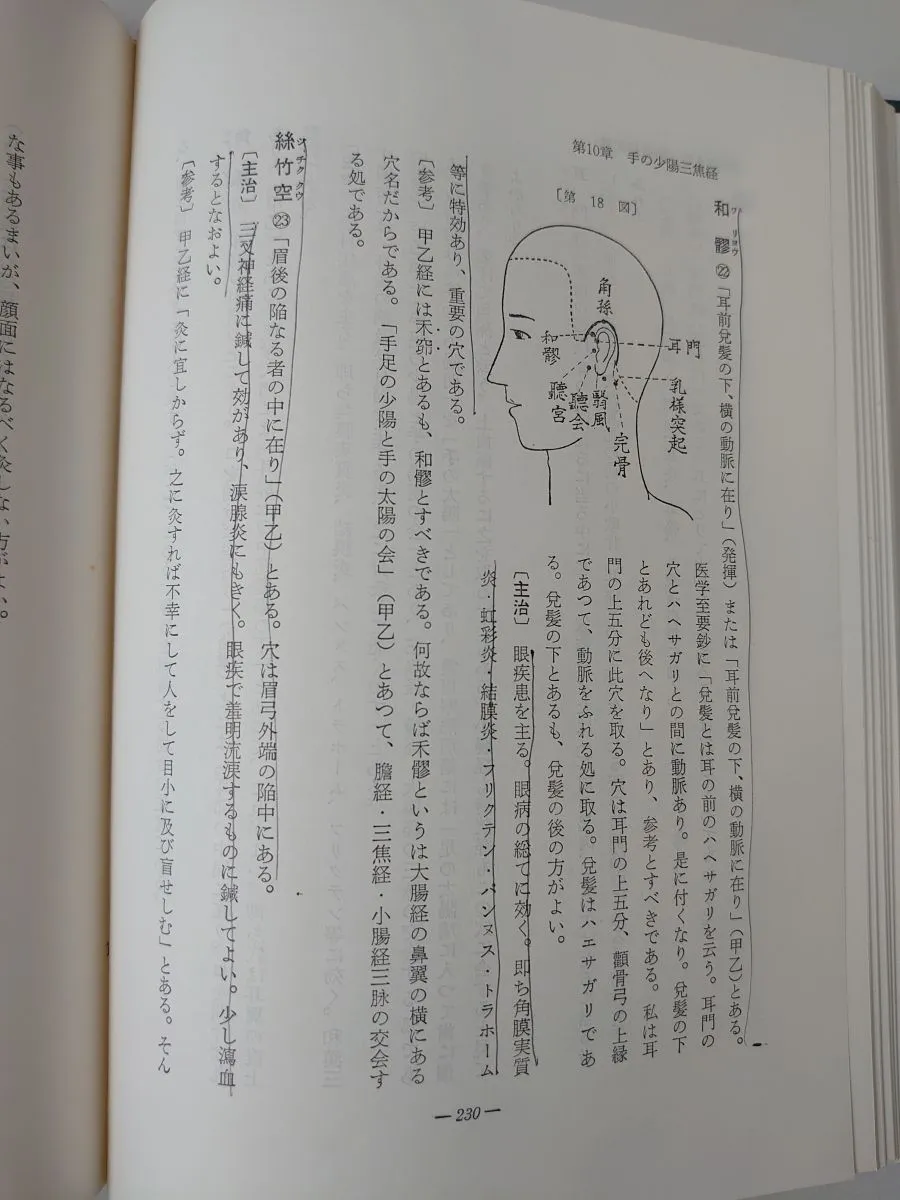 第10章　手の少陽三焦経
和髎 ㉒「耳前兌髮の下、横の動脈に在り」（発揮）または「耳前兌髮の下、横の動脈に在り」（甲乙）とある。
ワ　リヨウ
医学至要鈔に「兌髮とは耳の前のハヘサガリを云う。耳門の
穴とハヘサガリとの間に動脈あり。是に付くなり。兌髮の下
とあれども後へなり」とあり、参考とすべきである。私は耳
門の上五分に此穴を取る。穴は耳門の上五分、顴骨弓の上縁
であつて、動脈をふれる処に取る。兌髮はハエサガリであ
る。兌髮の下とあるも、兌髮の後の方がよい。
〔主治〕　眼疾患を主る。眼病の総てに効く。即ち角膜実質
炎・虹彩炎・結膜炎・フリクテン・パンヌス・トラホーム
〔第 18 図〕
角孫
和髎
耳門
聽宮
聽会
翳風
完骨
乳様突起
等に特効あり、重要の穴である。
〔参考〕　甲乙経には禾窌とあるも、和髎とすべきである。何故ならば禾髎というは大腸経の鼻翼の横にある
穴名だからである。「手足の少陽と手の太陽の会」（甲乙）とあつて、膽経・三焦経・小腸経三脉の交会す
る処である。
絲竹空 ㉓「眉後の陥なる者の中に在り」（甲乙）とある。穴は眉弓外端の陥中にある。
シ チク クウ
〔主治〕　三叉神経痛に鍼して効があり、涙腺炎にもきく。眼疾で羞明流涙するものに鍼してよい。少し瀉血
するとなおよい。
〔参考〕　甲乙経に「灸に宜しからず。之に灸すれば不幸にして人をして目小に及び盲せしむ」とある。そん
— 230 —
な事もあるまいが、顔面にはなるべく灸しない方がよい。